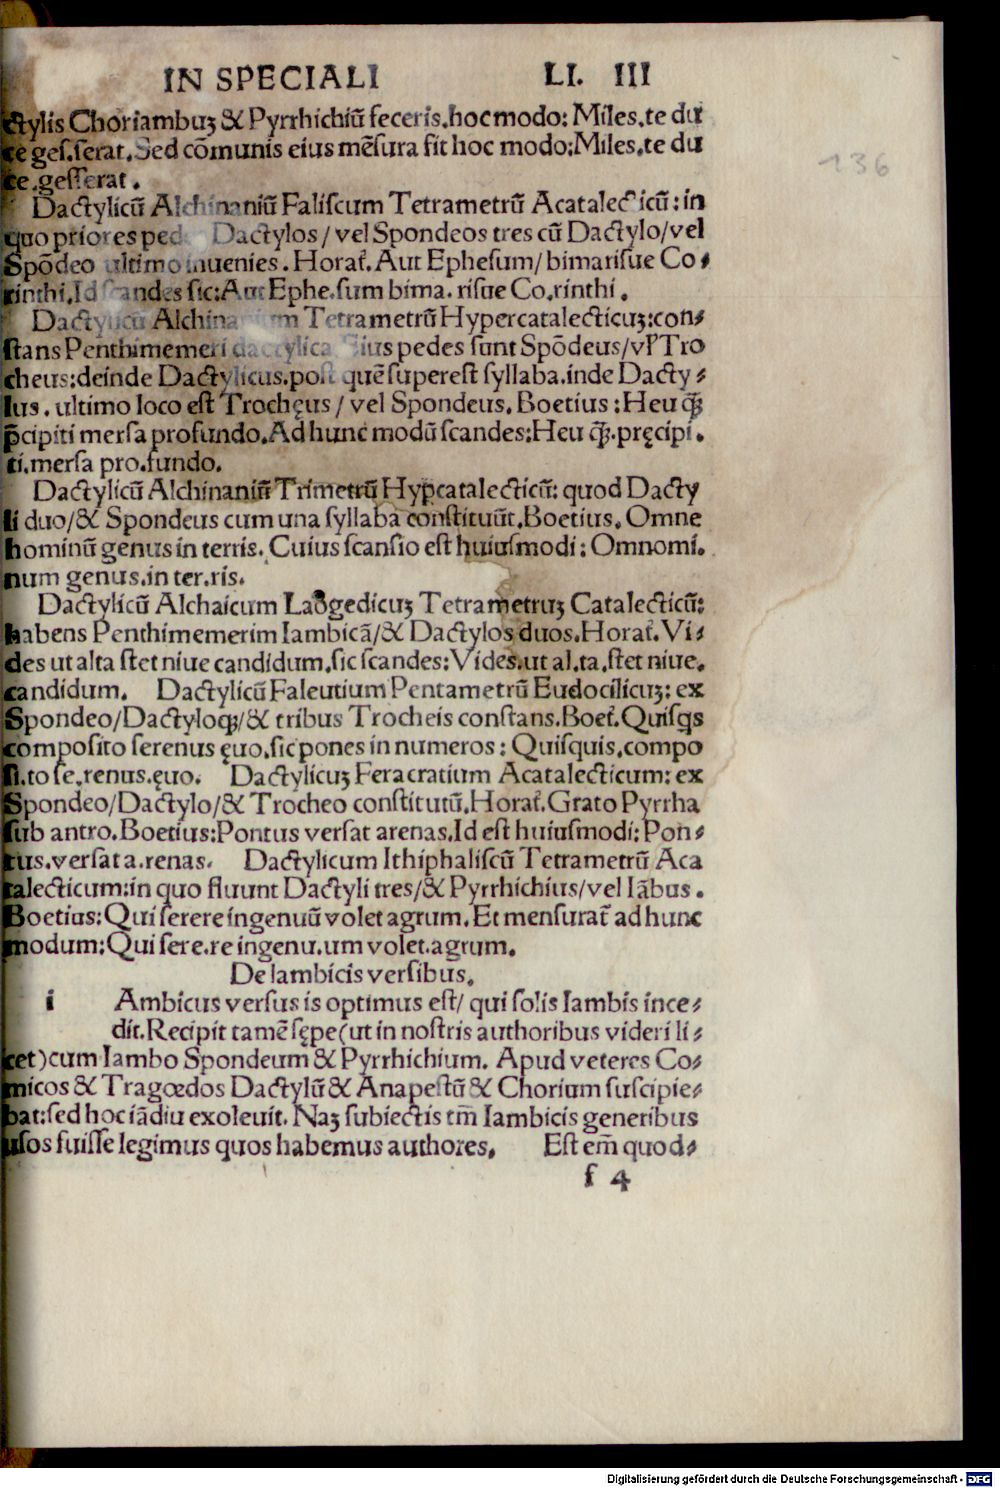 IN SPECIALI LI. III
136
ctylis Choriambuʒ & Pyrrhichiū feceris.hoc modo: Miles.te du
ce ges.serat. Sed cōmunis eius mēsura fit hoc modo:Miles.te du
ce.gesserat.
Dactylicū Alchinaniū Faliscum Tetrametrū Acatalecticū: in
quo priores Dactylos/ vel Spondeos tres cū Dactylo/vel
Spōdeo ultimo inuenies. Horat̄. Aut Ephesum/ bimarisue Co⸗
rinthi.Id scandes sic:Aut Ephe.sum bima. risue Co.rinthi.
Dactylicū Tetrametrū Hypercatalecticuʒ:con⸗
stans Penthimemeri dactylica. Eius pedes sunt Spōdeus/vꝉ Tro
cheus:deinde Dactylicus.post quē superest syllaba.inde Dacty⸗
lus. ultimo loco est Trochęus/ vel Spondeus. Boetius: Heu ꝗ̄ʒ
p̄cipiti mersa profundo. Ad hunc modū scandes:Heu ꝗ̄ʒ.pręcipi.
ti.mersa pro.fundo.
Dactylicū Alchinaniū Trimetrū Hyp̲catalecticū: quod Dacty
li duo/& Spondeus cum una syllaba constituūt. Boetius. Omne
hominū genus in terris. Cuius scansio est huiusmodi: Omnomi.
num genus.in ter.ris.
Dactylicū Alchaicum Laogedicuʒ Tetrametruʒ Catalecticū:
habens Penthimemerim Iambicā/& Dactylos duos. Horat̄. Vi⸗
des ut alta stet niue candidum.sic scandes: Vides.ut al.ta.stet niue.
candidum. Dactylicū Faleutium Pentametrū Eudocilicuʒ: ex
Spondeo/Dactyloqʒ/& tribus Trocheis constans. Boet̄. Quisqs
composito serenus ęuo.sic pones in numeros: Quisquis.compo
si.to se.renus.ęuo. Dactylicuʒ Feracratium Acatalecticum: ex
Spondeo/Dactylo/& Trocheo constitutū. Horat̄. Grato Pyrrha
sub antro. Boetius:Pontus versat arenas. Id est huiusmodi: Pon⸗
tus.versat a.renas. Dactylicum Ithiphaliscū Tetrametrū Aca
talecticum:in quo fluunt Dactyli tres/& Pyrrhichius/vel Iābus.
Boetius: Qui serere ingenuū volet agrum. Et mensurat̄ ad hunc
modum: Qui sere.re ingenu.um volet.agrum.
De Iambicis versibus.
i Ambicus versus is optimus est/ qui solis Iambis ince⸗
dit. Recipit tamē sępe(ut in nostris authoribus videri li⸗
cet)cum Iambo Spondeum & Pyrrhichium. Apud veteres Co⸗
micos & Tragœdos Dactylū & Anapestū & Chorium suscipie⸗
bat:sed hoc iādiu exoleuit. Naʒ subiectis tm̄ Iambicis generibus
usos fuisse legimus quos habemus authores. Est em̄ quod⸗
f 4
Digitalisierung gefördert durch die Deutsche Forschungsgemeinschaft - DFG